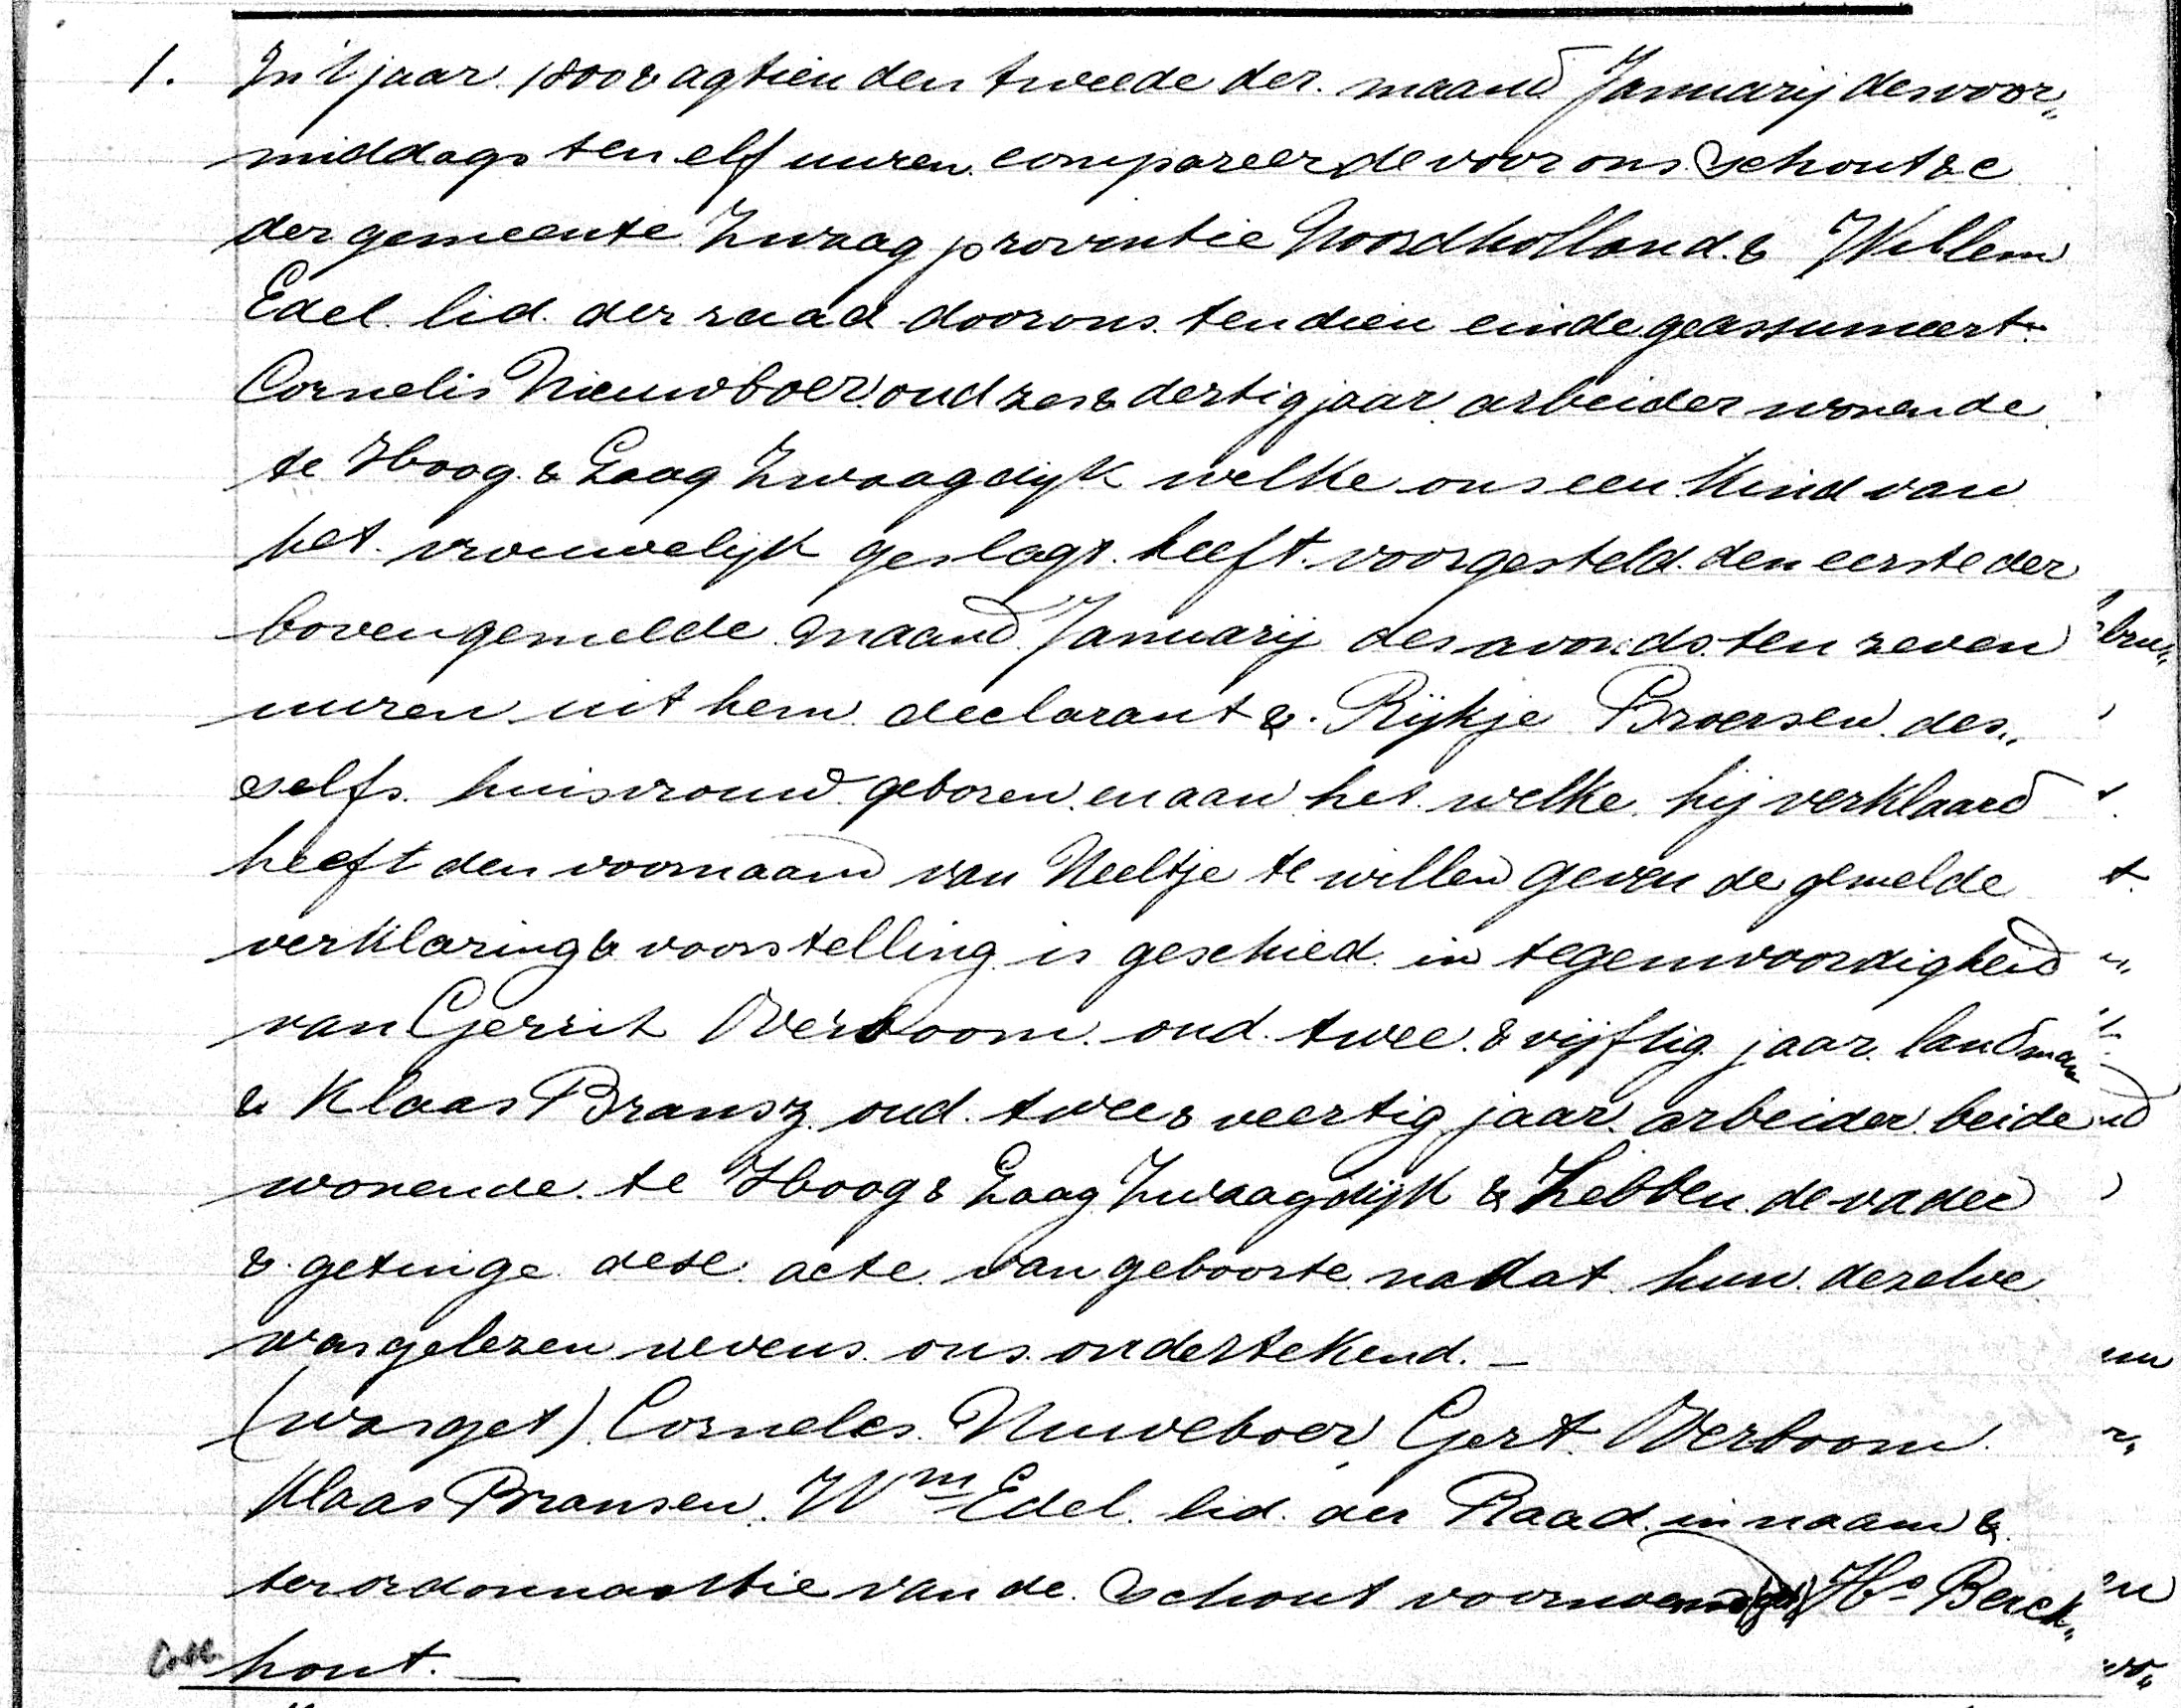 1. In 't jaar 1800 & agtien den tweede der maand Januarij des voor„
middags ten elf uuren compareerde voor ons Schout &c
der gemeente Zwaag provintie Noordholland & Willem
Edel lid der raad door ons ten dien einde geassumeert
Cornelis Nieuwboer oud zes & dertig jaar arbeider wonende
te Hoog & Laag Zwaagdijk welke ons een kind van
het vrouwelijk geslagt heeft voorgesteld den eerste der
bovengemelde maand Januarij des avonds ten zeven
uuren uit hem declarant & Rijkje Broersen des„
selfs huisvrouw geboren en aan het welke hij verklaard
heeft den voornaam van Neeltje te willen geven de gemelde
verklaring & voorstelling is geschied in tegenwoordigheid
van Gerrit Overboom oud twee & vijftig jaar landman
& Klaas Bransz oud twee & veertig jaar arbeider beide
wonende te Hoog & Laag Zwaagdijk & hebben de vader
& getuige dese acte van geboorte nadat hun dezelve
was gelezen nevens ons ondertekend. –
(was get) Corneles Nuweboer, Gert Overboom
Klaas Bransen. Wm Edel lid der Raad in naam &
ter ordonnanttie van de Schout voornoemd (get) Hs Berck„
hout. –